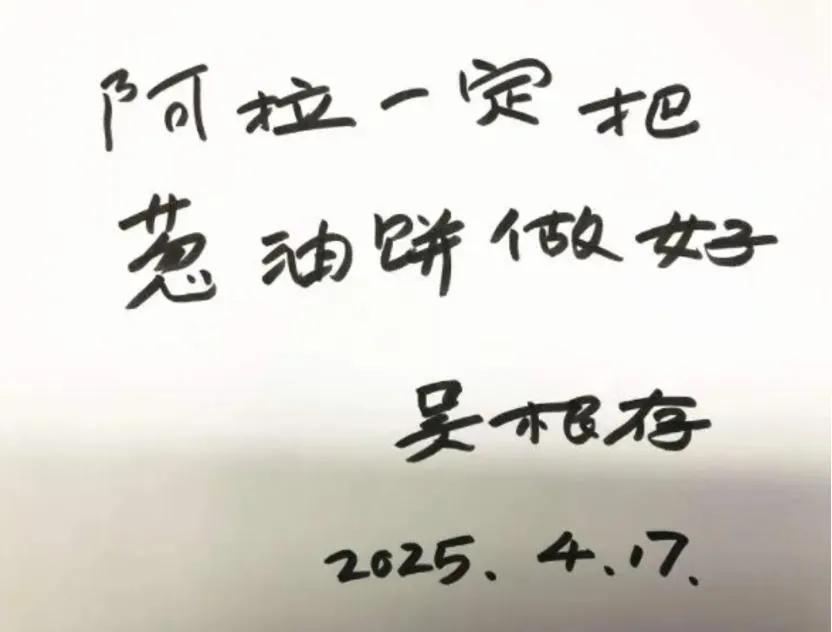 阿拉一定把
葱油饼做好
吴根存
2025.4.17.